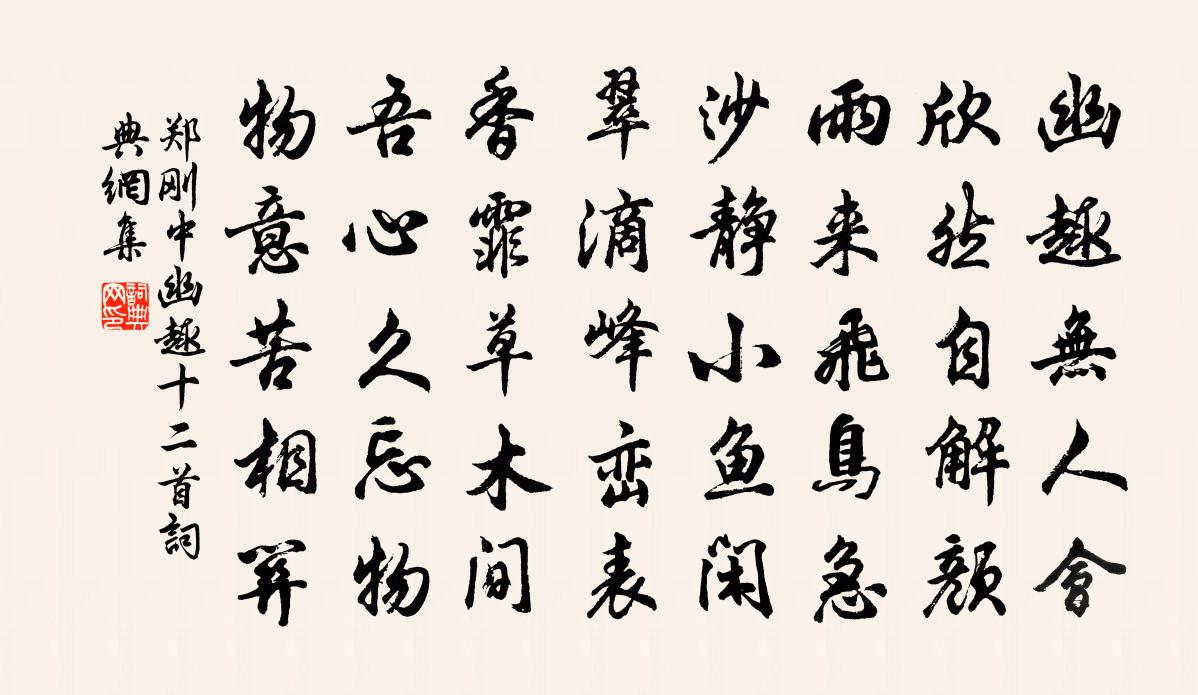 幽趣無人會
欣然自解顔
雨来飛鳥急
沙静小鱼闲
翠滴峰峦表
香霏草木间
吾心久忘物
物意苦相關
郑刚中幽趣十二首詞
典網集
詞典
网印